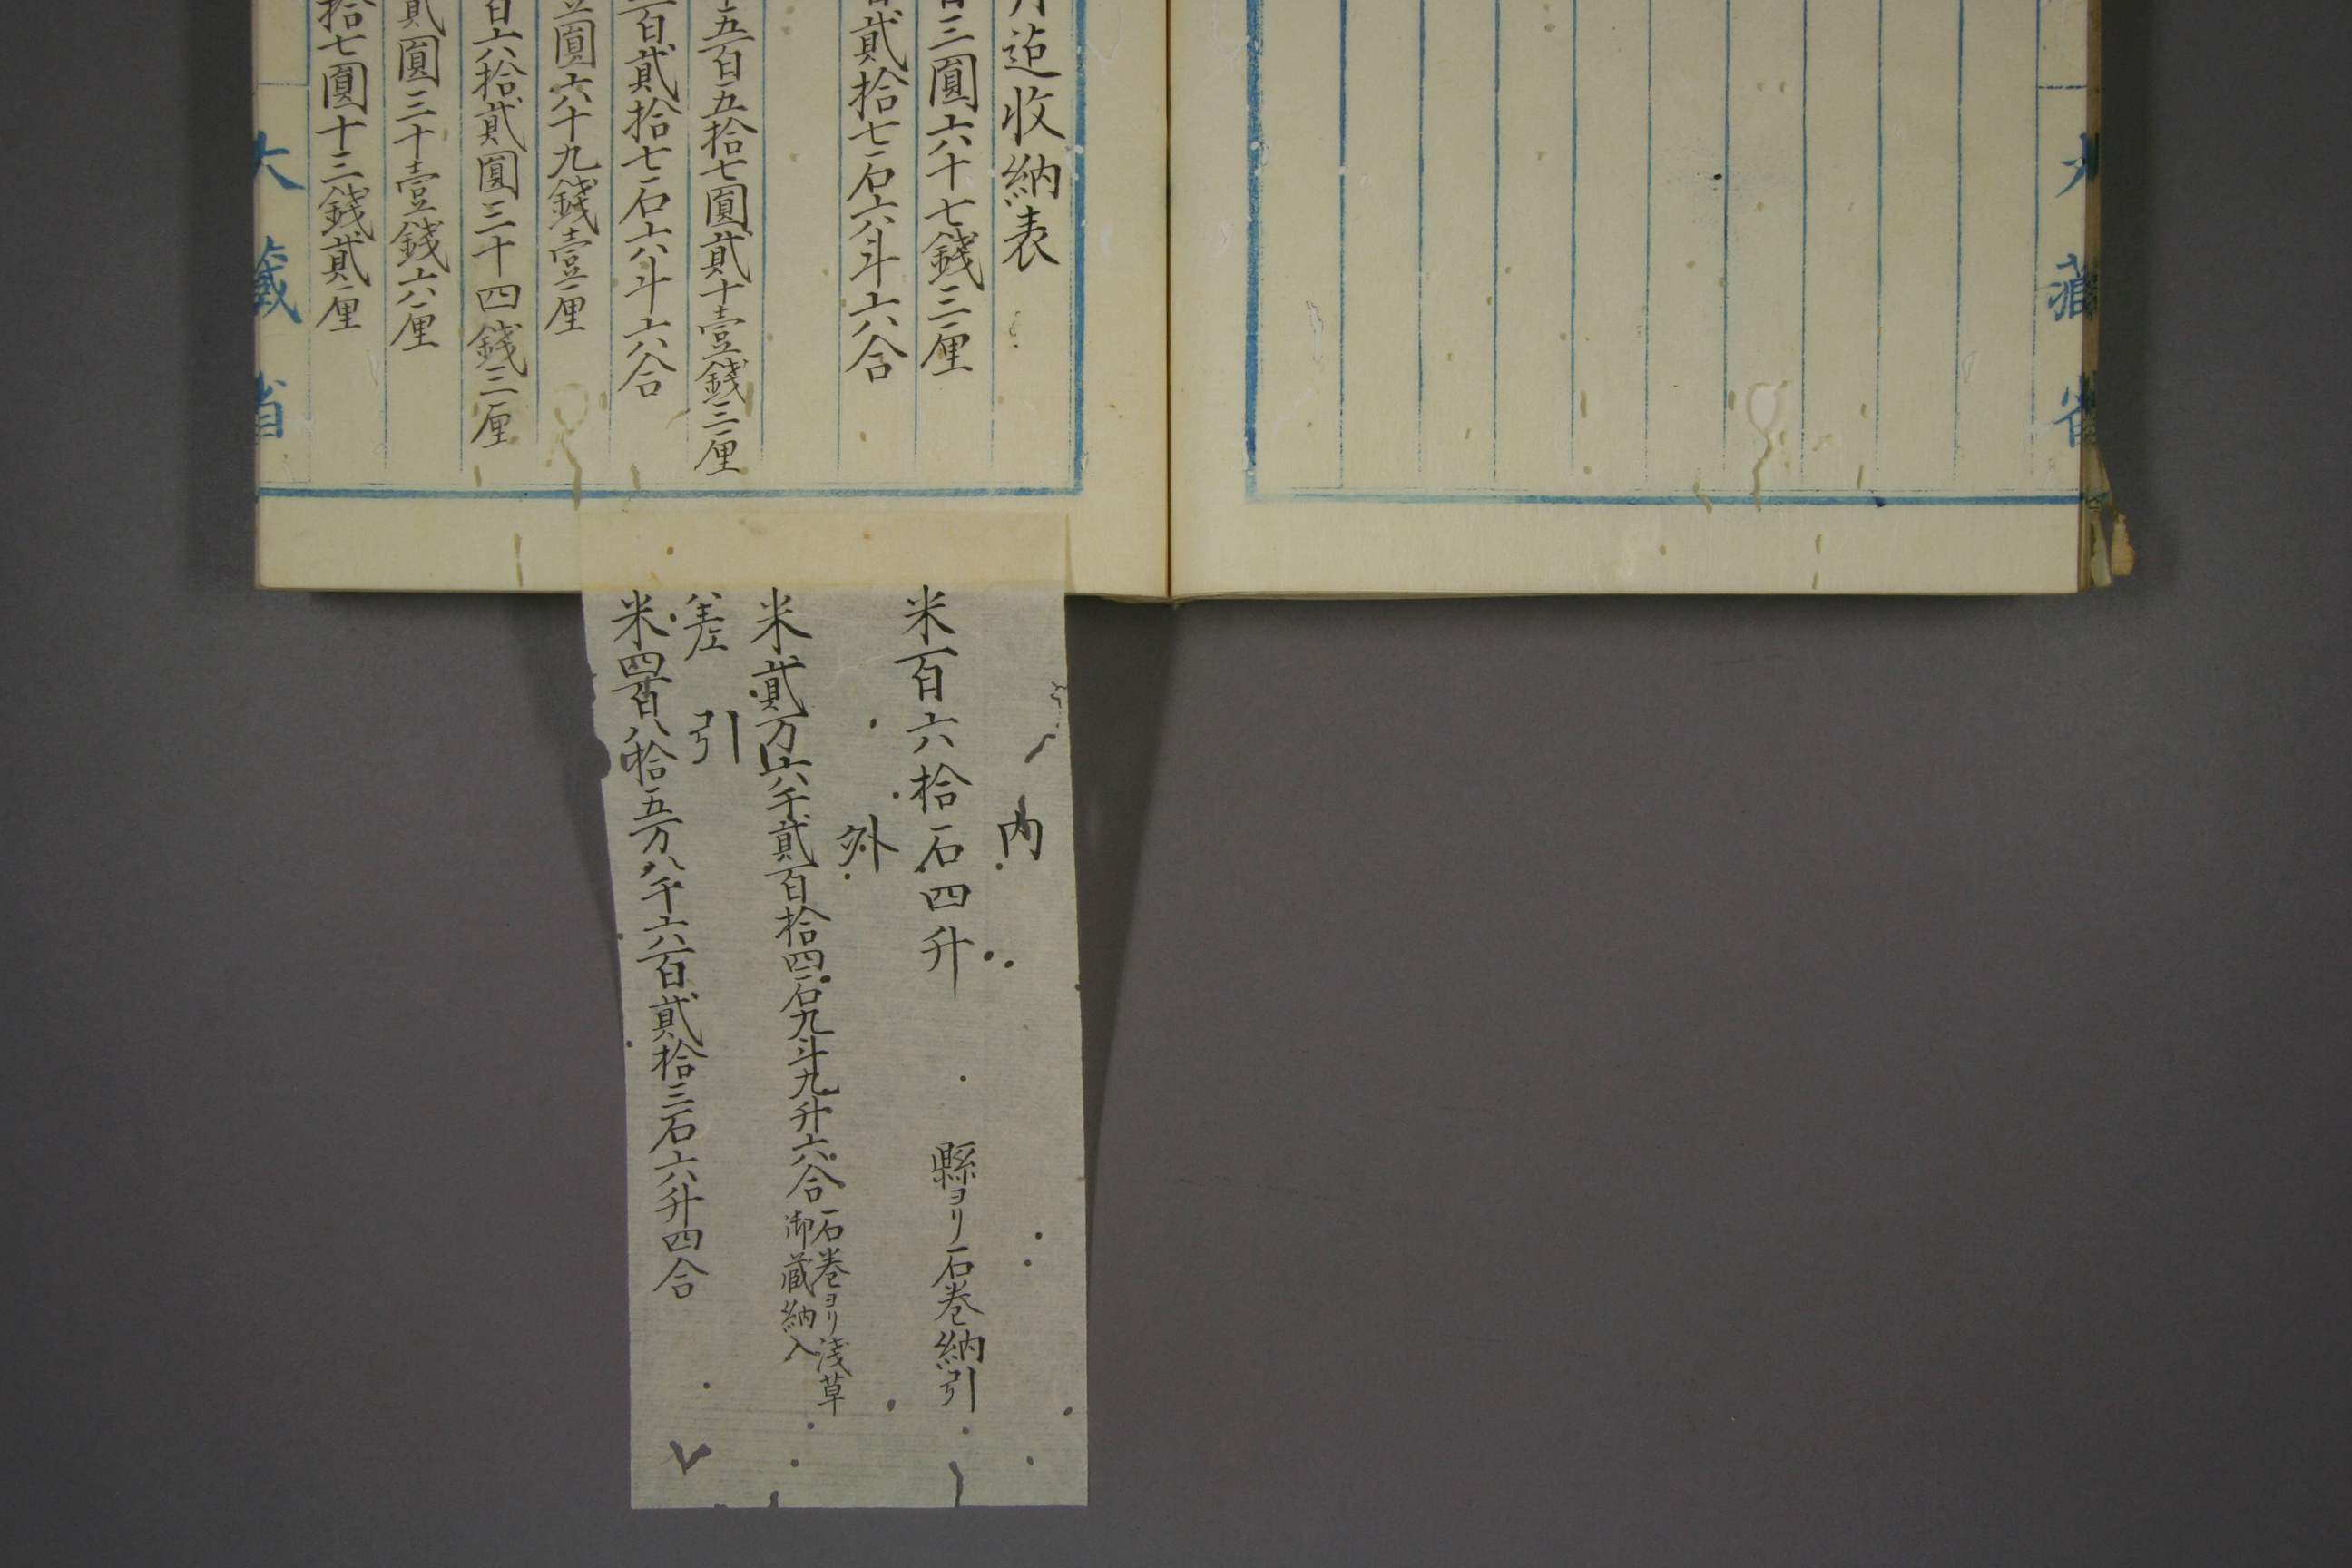 大藏省
月迠收納表
百三圓六十七錢三厘
百貳拾七石六斗六合
五百五拾七圓貳十壹錢三厘
百貳拾七石六斗六合
圓六十九錢壹厘
百六拾貳圓三十四錢三厘
貳圓三十壹錢六厘
拾七圓十三錢貳厘
大藏省
内
米百六拾石四升 縣ヨリ石巻納引
外
米貳万六千貳百拾四石九斗九升六合 石巻ヨリ浅草
御蔵納入
差引
米四百八拾五万八千六百貳拾三石六升四合